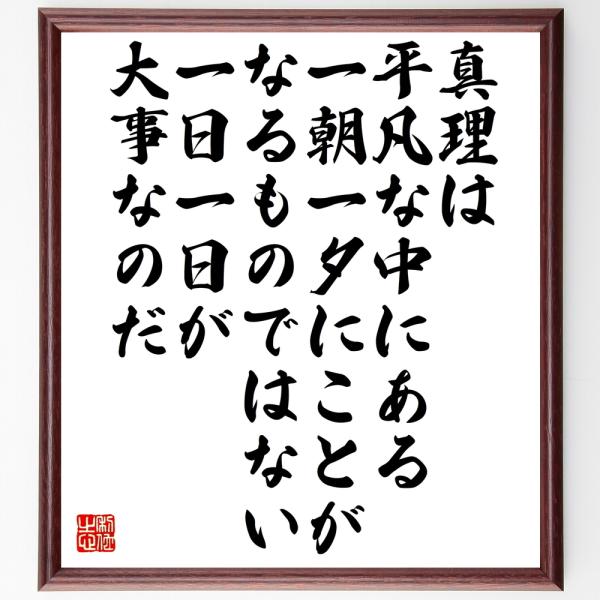 真理は
平凡な中にある
一朝一夕にことが
なるものではない
一日一日が
大事なのだ